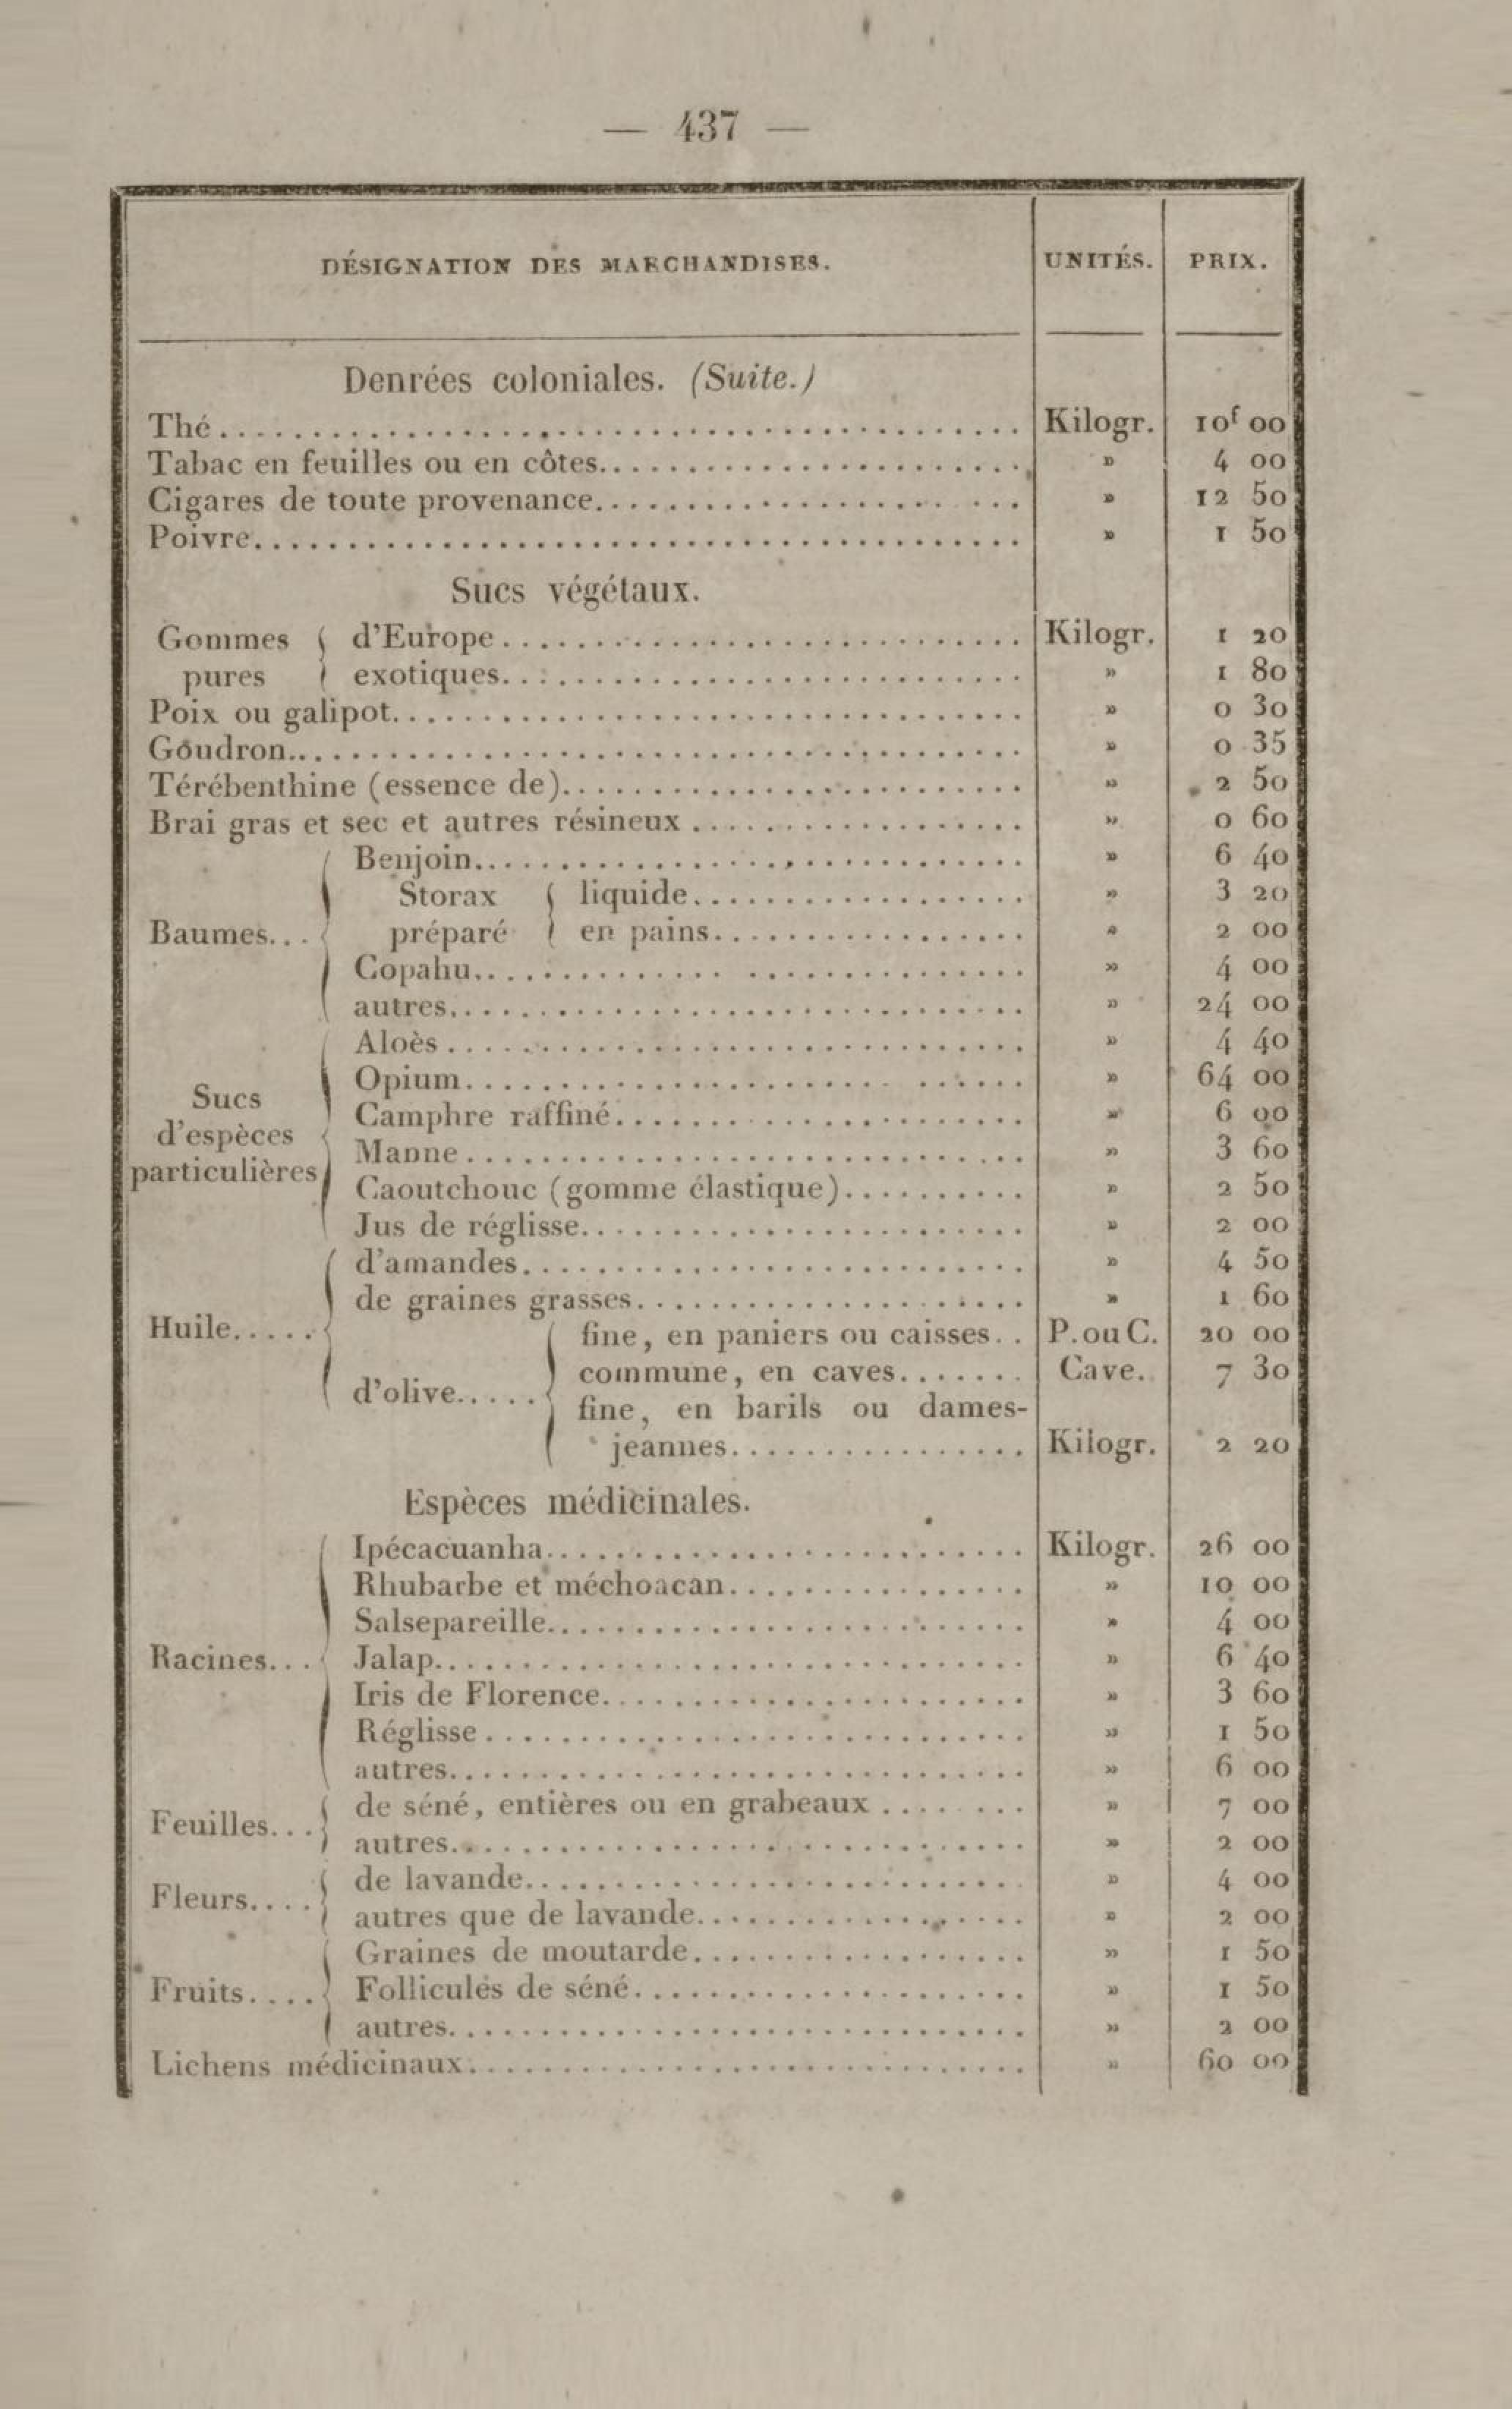 — 437 —
DÉSIGNATION DES MARCHANDISES. UNITÉS. PRIX.
Denrées coloniales. (Suite.)
Thé........ Kilogr. 10f 00
Tabac en feuilles ou en côtes........ » 4 00
Cigares de toute provenance........ » 12 50
Poivre........ » 1 50
Sucs végétaux.
Gommes pures { d'Europe........ Kilogr. 1 20
exotiques........ » 1 80
Poix ou galipot........ » 0 30
Goudron........ » 0 35
Térébenthine (essence de)........ » 2 50
Brai gras et sec et autres résineux........ » 0 60
Baumes... { Benjoin........ » 6 40
Storax préparé { liquide........ » 3 20
en pains........ » 2 00
Copahu........ » 4 00
autres........ » 24 00
Sucs d'espèces particulières { Aloès........ » 4 40
Opium........ » 64 00
Camphre raffiné........ » 6 00
Manne........ » 3 60
Caoutchouc (gomme élastique)........ » 2 50
Jus de réglisse........ » 2 00
Huile..... { d'amandes........ » 4 50
de graines grasses........ » 1 60
d'olive..... { fine, en paniers ou caisses.. P. ou C. 20 00
commune, en caves....... Cave. 7 30
fine, en barils ou dames-
jeannes........ Kilogr. 2 20
Espèces médicinales.
Racines... { Ipécacuanha........ Kilogr. 26 00
Rhubarbe et méchoacan........ » 10 00
Salsepareille........ » 4 00
Jalap........ » 6 40
Iris de Florence........ » 3 60
Réglisse........ » 1 50
autres........ » 6 00
Feuilles... { de séné, entières ou en grabeaux........ » 7 00
autres........ » 2 00
Fleurs.... { de lavande........ » 4 00
autres que de lavande........ » 2 00
Fruits.... { Graines de moutarde........ » 1 50
Follicules de séné........ » 1 50
autres........ » 2 00
Lichens médicinaux........ » 60 00